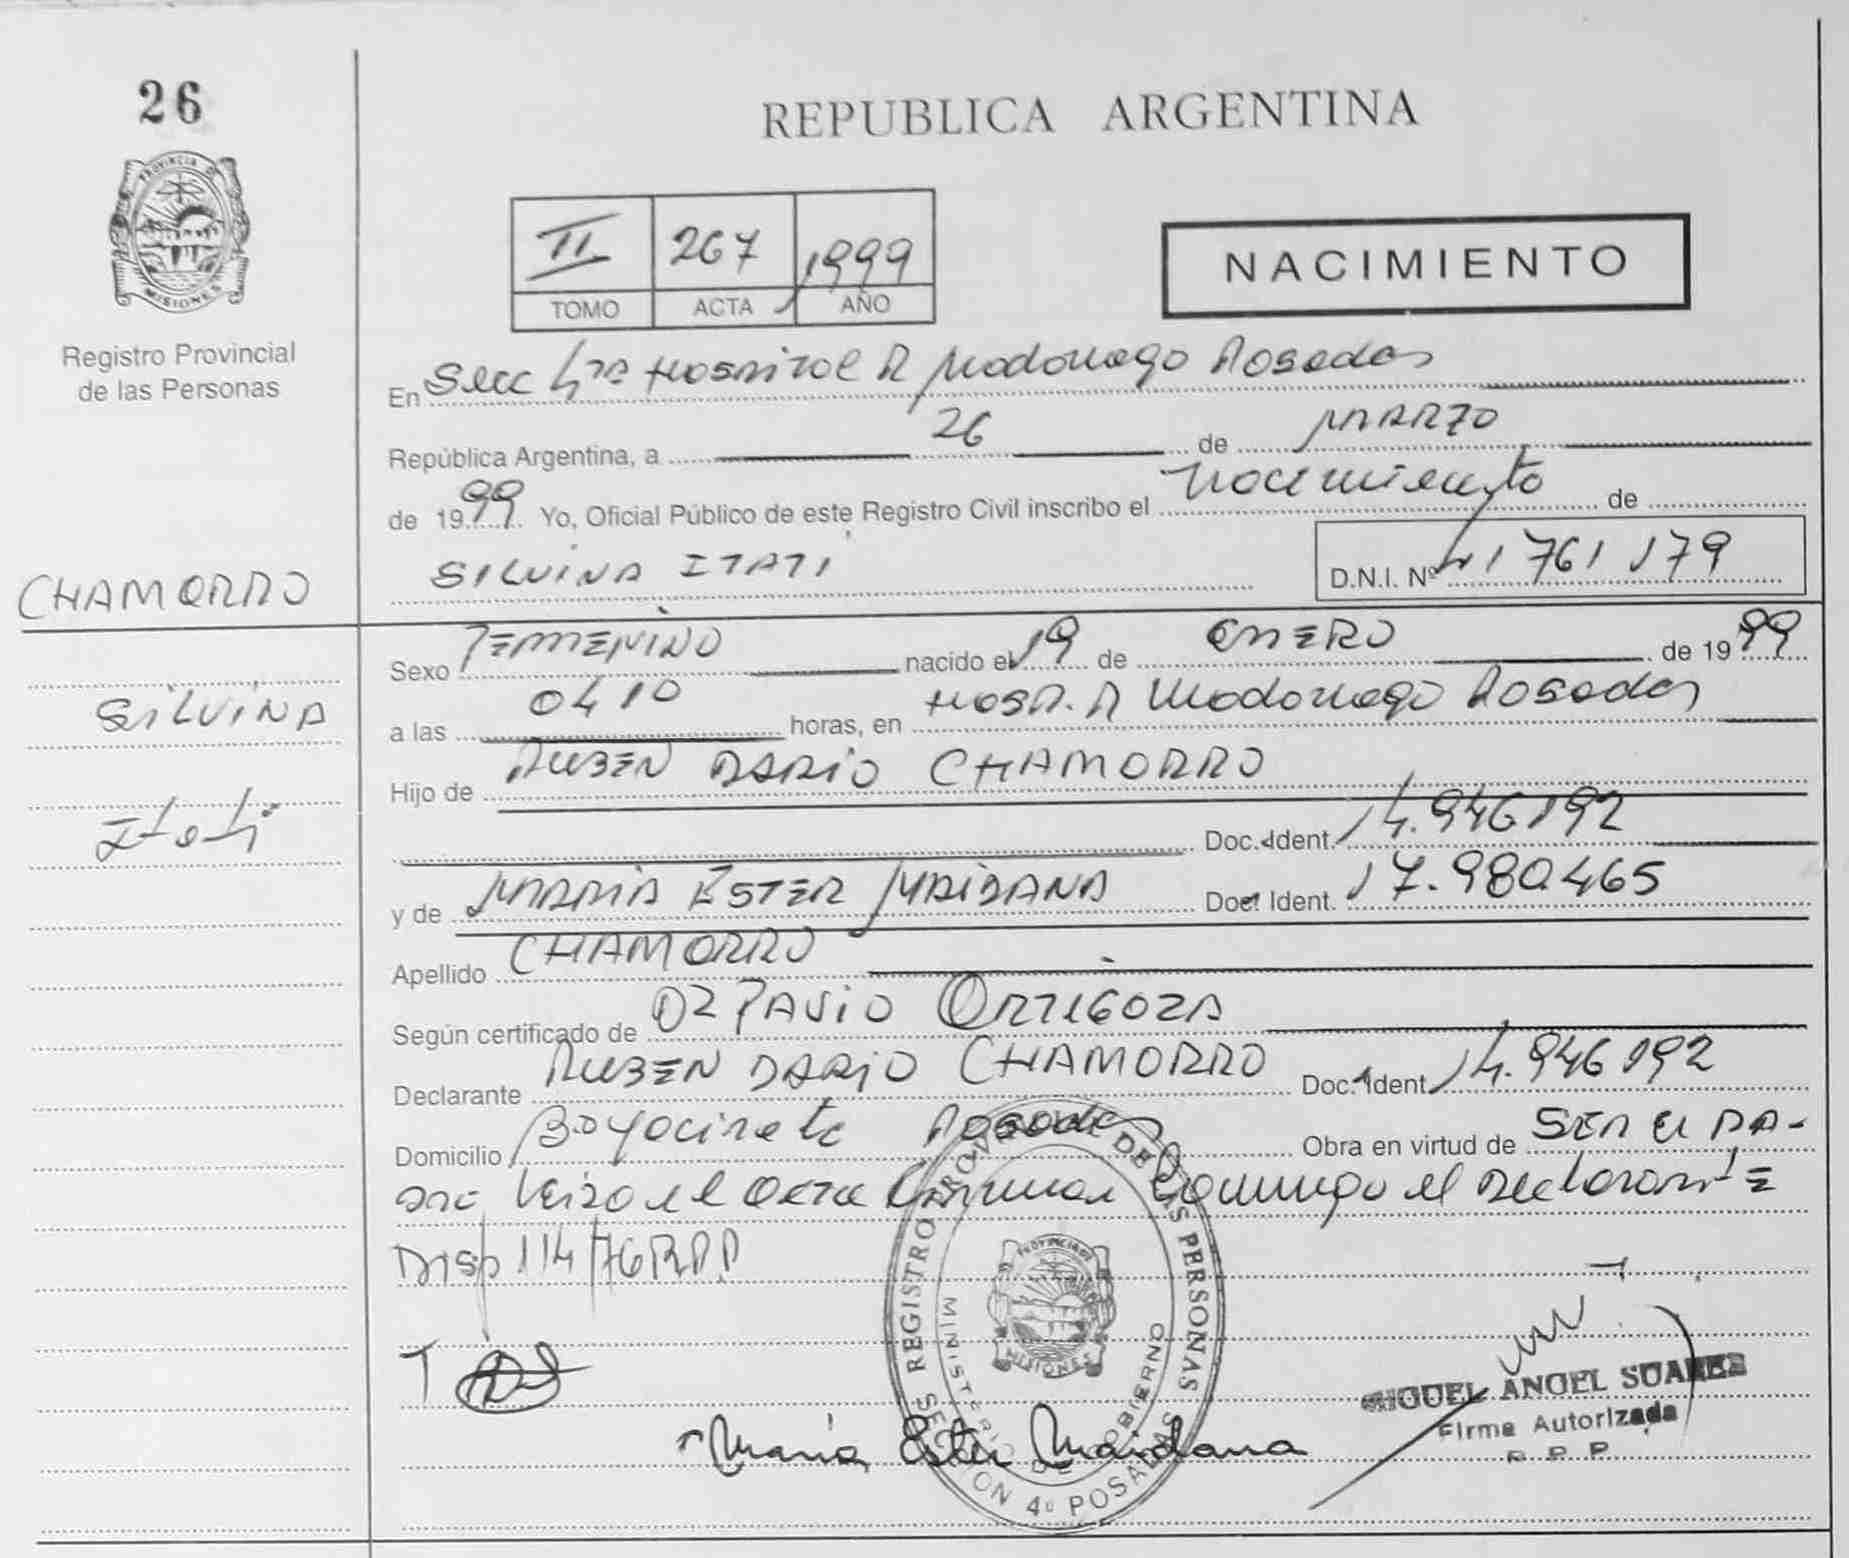 26
PROVINCIA DE
MISIONES
Registro Provincial
de las Personas
CHAMORRO
SILVINA
Itati
REPUBLICA ARGENTINA
II 267 1999
TOMO ACTA AÑO
NACIMIENTO
En Secc 4ta Hospital R Madariaga Posadas
República Argentina, a 26 de MARZO
de 1999 Yo, Oficial Público de este Registro Civil inscribo el nacimiento de
SILVINA ITATI
D.N.I. Nº 41761179
Sexo FEMENINO nacido el 19 de ENERO de 1999
a las 0410 horas, en Hosp. R Madariaga Posadas
Hijo de RUBEN DARIO CHAMORRO
Doc. Ident. 14.946192
y de MARIA ESTER MAIDANA Doc. Ident. 17.980465
Apellido CHAMORRO
Según certificado de OFPAVIO ORTIGOZA
Declarante RUBEN DARIO CHAMORRO Doc. Ident. 14.946192
Domicilio Bo Yacireta Posadas Obra en virtud de SER EL PA-
dre Leida el acta firman conmigo el declarante
DISP 114/76 RPP
REGISTRO PROVINCIAL DE LAS PERSONAS
MINISTERIO DE GOBIERNO
PROVINCIA DE
MISIONES
SECCION 4º POSADAS
María Ester Maidana
MIGUEL ANGEL SUAREZ
Firma Autorizada
R. P. P.